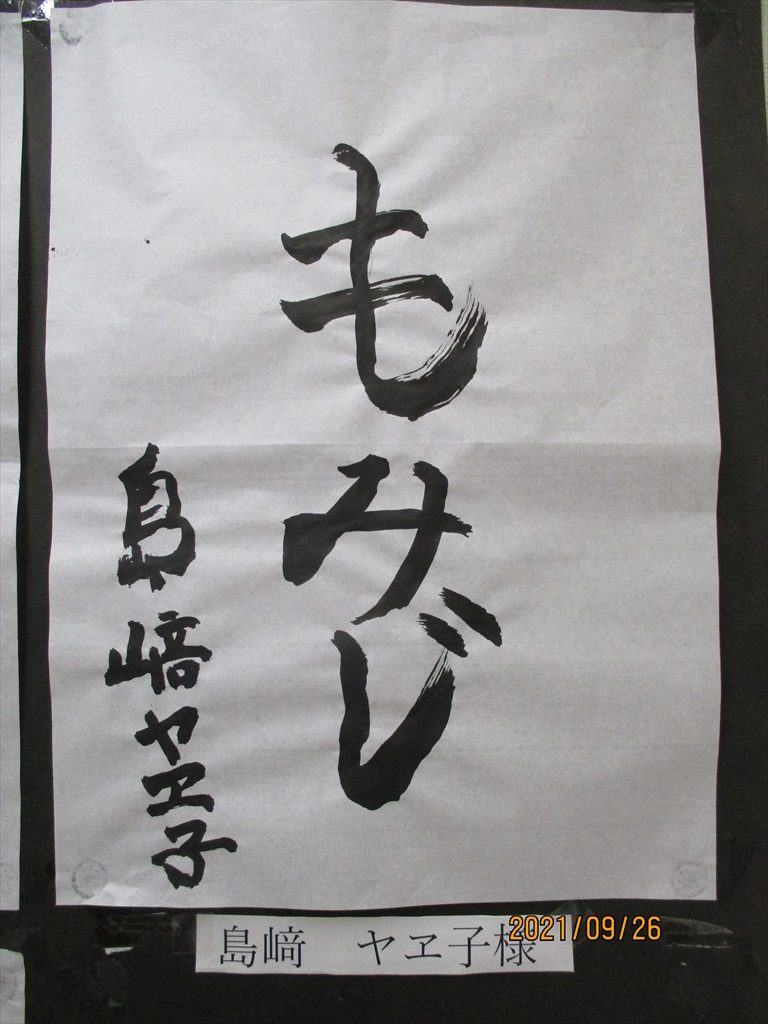 もみじ
島﨑ヤヱ子
島﨑　ヤヱ子様
2021/09/26